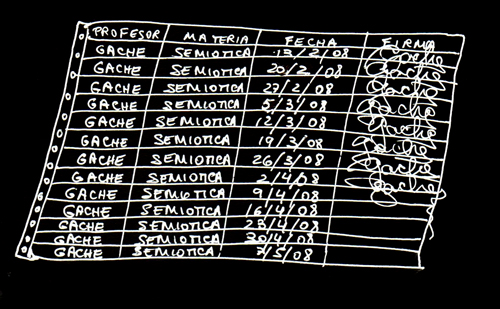 PROFESOR MATERIA FECHA FIRMA
GACHE SEMIOTICA 13/2/08 Gache
GACHE SEMIOTICA 20/2/08 Gache
GACHE SEMIOTICA 27/2/08 Gache
GACHE SEMIOTICA 5/3/08 Gache
GACHE SEMIOTICA 12/3/08 Gache
GACHE SEMIOTICA 19/3/08 Gache
GACHE SEMIOTICA 26/3/08 Gache
GACHE SEMIOTICA 2/4/08 Gache
GACHE SEMIOTICA 9/4/08
GACHE SEMIOTICA 16/4/08
GACHE SEMIOTICA 23/4/08
GACHE SEMIOTICA 30/4/08
GACHE SEMIOTICA 7/5/08